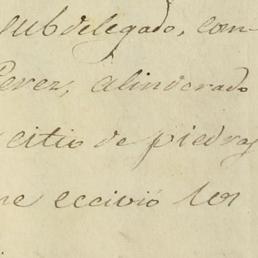 subdelegado, con-
Perez, alinderado
citio de piedras
ne eccivió los